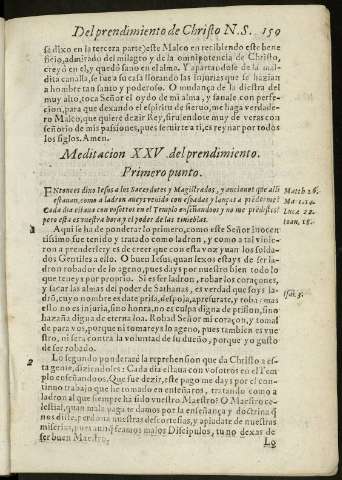 Del prendimiento de Christo N.S. 159
sẽ dixo en la tercera parte) este Malco en recibiendo este bene
ficio, admirado del milagro y de la omnipotencia de Christo,
creyó en el, y quedó sano en el alma. Y apartandose de la mal
dita canalla, se fue a su casa llorando las injurias que se hazian
a hombre tan santo y poderoso. O mudança de la diestra del
muy alto, toca Señor el oydo de mi alma, y sanale con perfe-
cion, para que dexando el espiritu de sieruo, me haga verdade-
ro Malco, que quiere dezir Rey, siruiendote muy de veras con
señorio de mis passiones, pues seruirte a ti, es reynar por todos
los siglos. Amen.
Meditacion XXV. del prendimiento.
Primero punto.
Entonces dixo Iesus a los Sacerdotes y Magistrados, y ancianos que alli
estauan, como a ladron aueys venido con espadas y lanças a prederme?
Cada dia estaua con vosotros en el Templo enseñandoos y no me predistes?
pero esta es vuestra hora y el poder de las tinieblas.
Matth 26.
Mar. 14.
Luca 22.
Ioan. 18.
1 Aqui se ha de ponderar lo primero, como este Señor inocen
tissimo fue tenido y tratado como ladron, y como a tal vinie-
ron a prenderle: y es de creer que con esta voz yuan los solda-
dos Gentiles a ello. O buen Iesus, quan lexos estays de ser la-
dron robador de lo ageno, pues days por nuestro bien todo lo
que teneys por proprio. Si es ser ladron, robar los coraçones,
y sacar las almas del poder de Sathanas, es verdad que soys la-
drõ, cuyo nombre es date prisa, despoja, apresurate, y roba: mas
ello no es injuria, sino honra, no es culpa digna de prision, sino
hazaña digna de eterna loa. Robad Señor mi coraçon, y tomal
de para vos, porque ni tomareys lo ageno, pues tambien es vue
stro, ni sera contra la voluntad de su dueño, porque yo gusto
de ser robado.
Isai. 8.
2 Lo segundo ponderarè la reprehension que da Christo a es-
ta gente, diziendoles: Cada dia estaua con vosotros en el Tem-
plo enseñandoos. Que fue dezir, este pago me days por el con-
tinuo trabajo que he tomado en enseñaros, tratando como a
ladron al que siempre ha sido vuestro Maestro? O Maestro ce-
lestial, quan mala paga te damos por la enseñança y doctrina q̃
nos diste, perdona nuestras descortesias, y apiadate de nuestras
miserias, pues aunq̃ seamos malos Discipulos, tu no dexas de
ser buen Maestro.
Lo